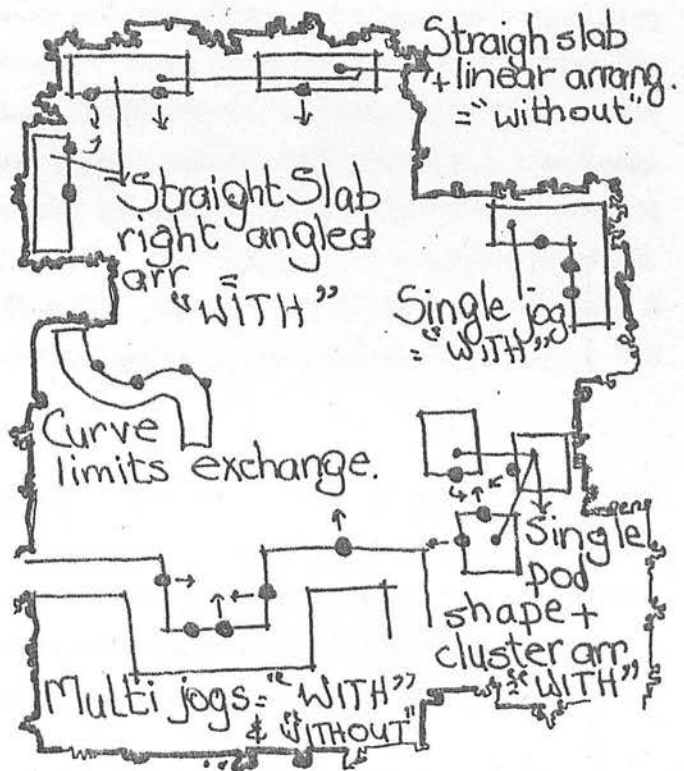 Straigh slab
+ linear arrang.
= "without"
Straight Slab
right angled
arr
=
"WITH"
Single jog
= "WITH"
Curve
limits exchange.
Single
pod
shape +
cluster arr
= "WITH"
Multi jogs = "WITH"
& "WITHOUT"